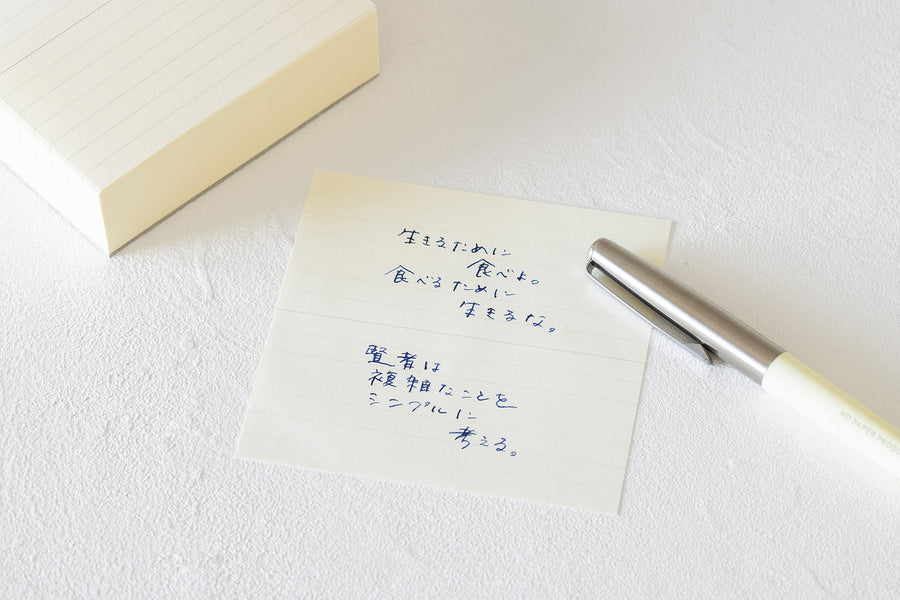 生きるために
食べよ。
食べるために
生きるな。
賢者は
複雑なことを
シンプルに
考える。
MD PAPER PRODUC